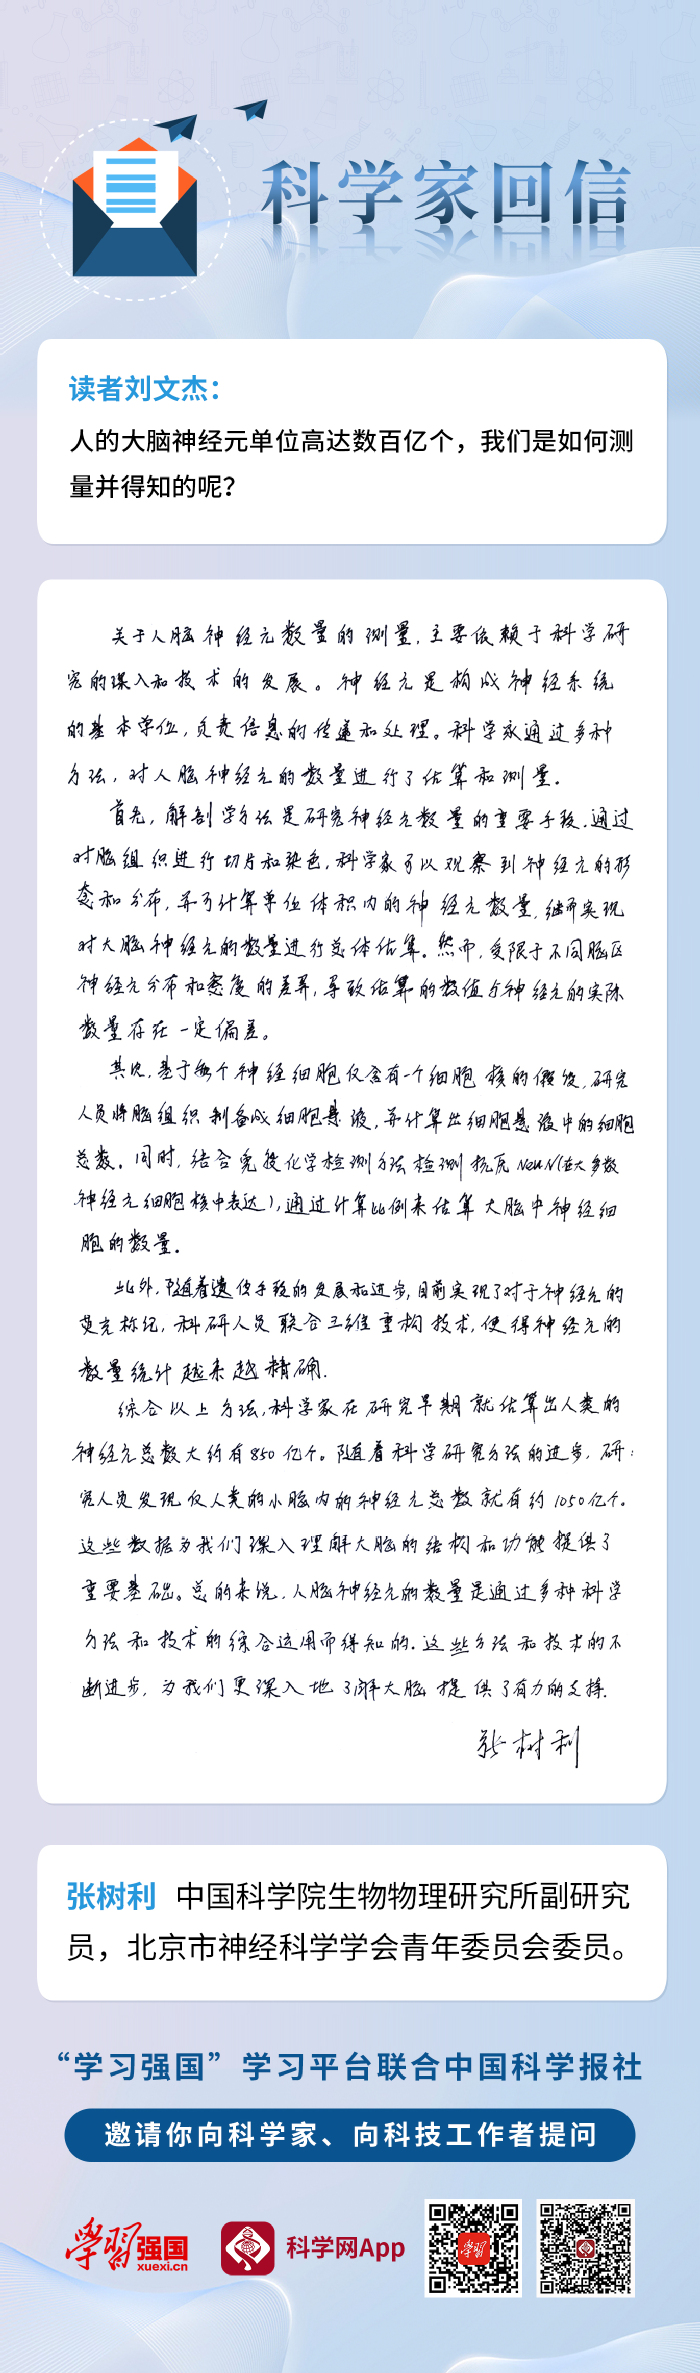 科学家回信
读者刘文杰：
人的大脑神经元单位高达数百亿个，我们是如何测
量并得知的呢？
关于人脑神经元数量的测量，主要依赖于科学研
究的深入和技术的发展。神经元是构成神经系统
的基本单位，负责信息的传递和处理。科学家通过多种
方法，对人脑神经元的数量进行了估算和测量。
首先，解剖学方法是研究神经元数量的重要手段，通过
对脑组织进行切片和染色，科学家可以观察到神经元的形
态和分布，并可计算单位体积内的神经元数量，继而实现
对大脑神经元的数量进行总体估算。然而，受限于不同脑区
神经元分布和密度的差异，导致估算的数值与神经元的实际
数量存在一定偏差。
其次，基于每个神经细胞仅含有一个细胞核的假设，研究
人员将脑组织制备成细胞悬液，并计算出细胞悬液中的细胞
总数。同时，结合免疫化学检测方法检测抗原NeuN（在大多数
神经元细胞核中表达），通过计算比例来估算大脑中神经细
胞的数量。
此外，随着遗传手段的发展和进步，目前实现了对于神经元的
荧光标记，科研人员联合三维重构技术，使得神经元的
数量统计越来越精确。
综合以上方法，科学家在研究早期就估算出人类的
神经元总数大约有850亿个。随着科学研究方法的进步，研
究人员发现仅人类的小脑内的神经元总数就有约1050亿个。
这些数据为我们深入理解大脑的结构和功能提供了
重要基础。总的来说，人脑神经元的数量是通过多种科学
方法和技术的综合运用而得知的。这些方法和技术的不
断进步，为我们更深入地了解大脑提供了有力的支持。
张树利
张树利 中国科学院生物物理研究所副研究
员，北京市神经科学学会青年委员会委员。
“学习强国”学习平台联合中国科学报社
邀请你向科学家、向科技工作者提问
学习强国
xuexi.cn
科学网App
学习